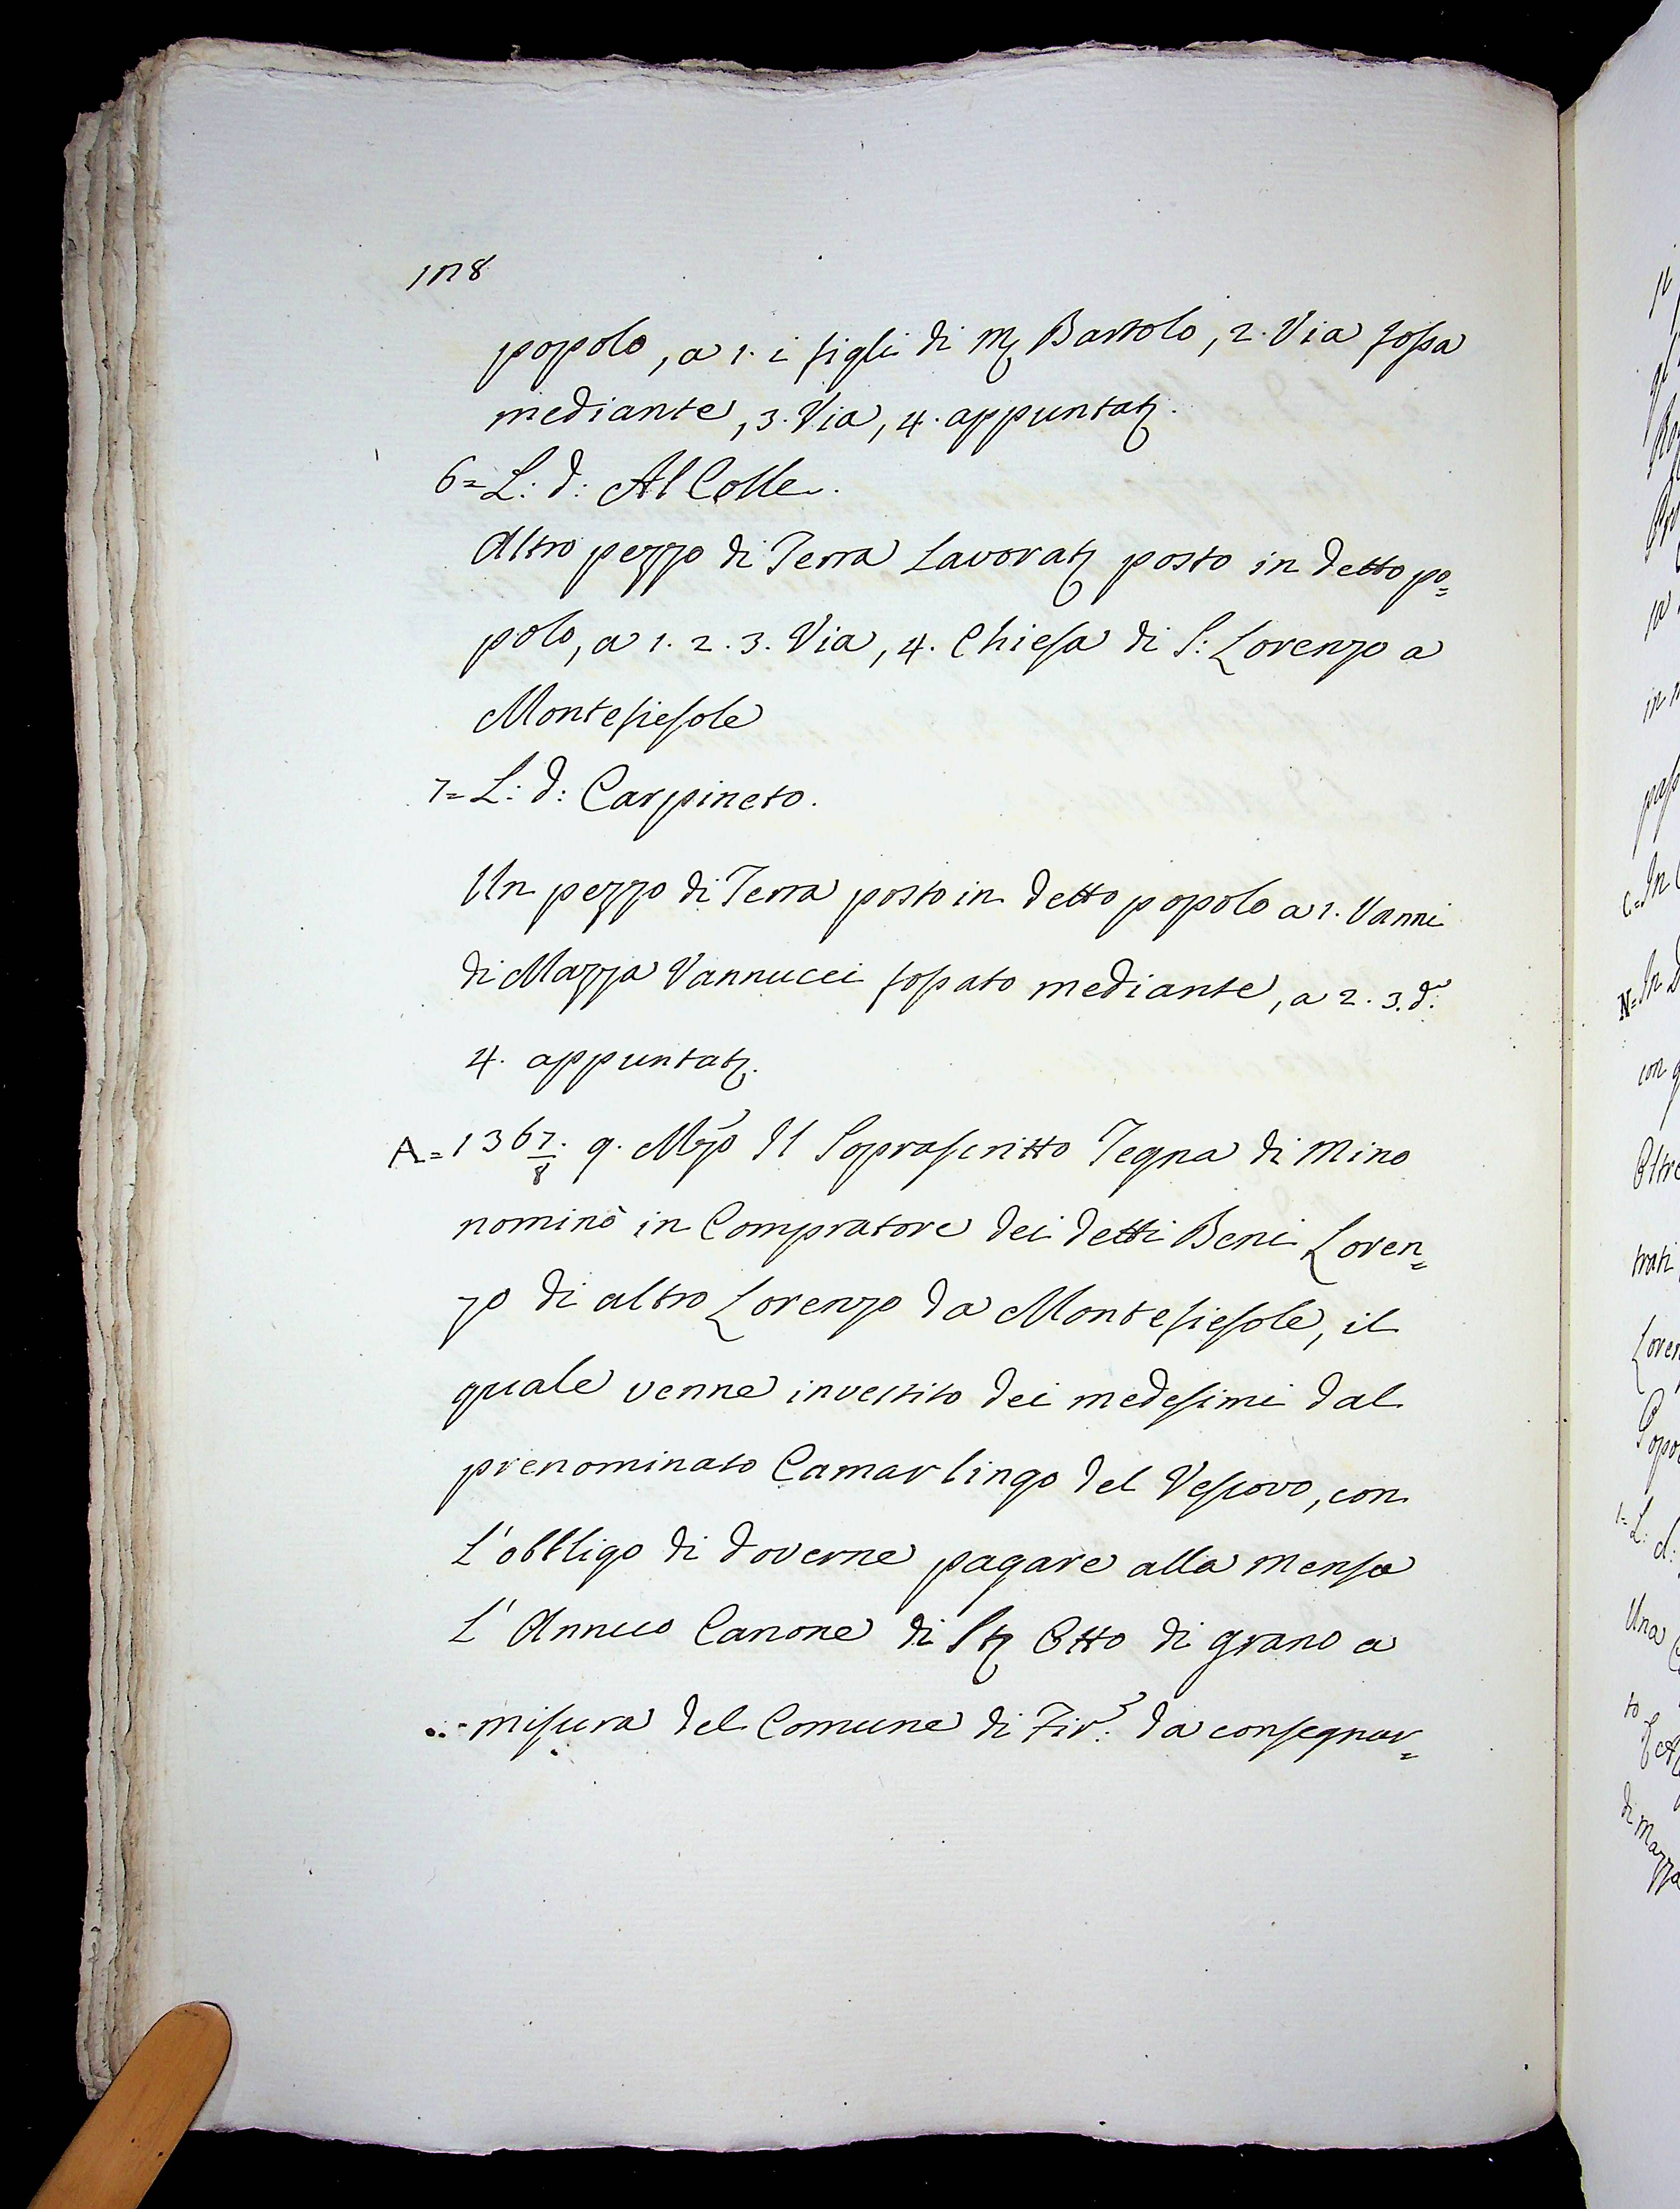 178
popolo, a 1. i figli di M. Bartolo, 2. Via fossa
mediante, 3. Via, 4. appuntat.
6= L: d: Al Colle.
Altro pezzo di Terra Lavorat. posto in detto po=
polo, a 1. 2. 3. Via, 4. Chiesa di S: Lorenzo a
Montefiesole
7= L: d: Carpineto.
Un pezzo di Terra posto in detto popolo a 1. Vanni
di Mazza Vannucci fossato mediante, a 2. 3. d:
4. appuntat.
A= 1367/8. 9. Mzo Il Soprascritto Tegna di Mino
nominò in Compratore dei detti Beni Loren=
zo di altro Lorenzo da Montefiesole, il
quale venne investito dei medesimi dal
prenominato Camarlingo del Vescovo, con
l'obbligo di doverne pagare alla Mensa
l'Annuo Canone di St. Otto di grano a
misura del Comune di Fir: da consegnar=